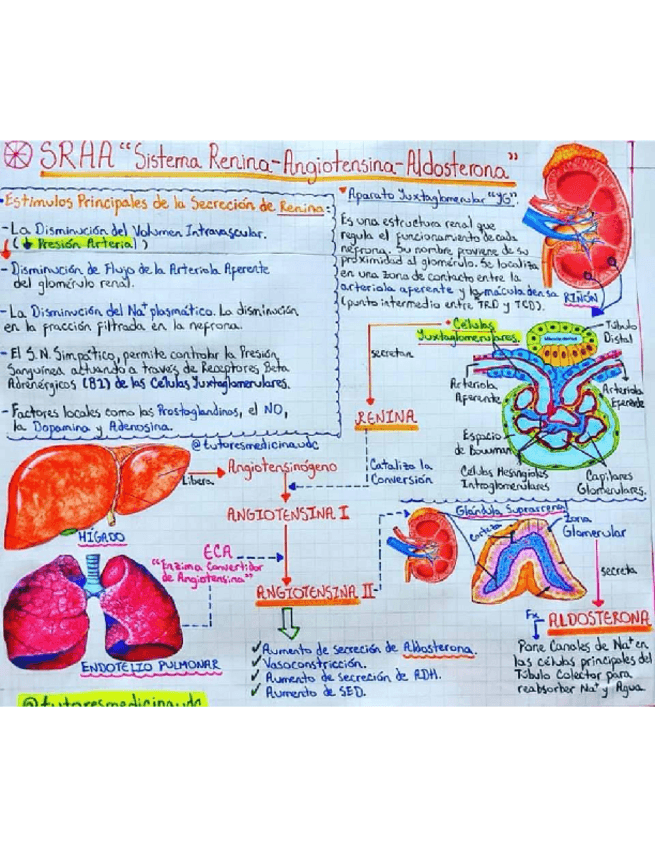 SRAA "Sistema Renina-Angiotensina-Aldosterona"
Estímulos Principales de la Secreción de Renina:
- La Disminución del Volumen Intravascular.
(↓ Presión Arterial)
- Disminución de Flujo de la Arteriola Aferente
del glomérulo renal.
- La Disminución del Na+ plasmático. La disminución
en la fracción filtrada en la nefrona.
- El S.N. Simpático, permite controlar la Presión
Sanguínea actuando a través de Receptores Beta
Adrenérgicos (B1) de las Células Yuxtaglomerulares.
- Factores locales como las Prostaglandinas, el NO,
la Dopamina y Adenosina.
@tutoresmedicina.udc
Aparato Yuxtaglomerular "YG".
Es una estructura renal que
regula el funcionamiento de cada
nefrona. Su nombre proviene de su
proximidad al glomérulo. Se localiza
en una zona de contacto entre la
arteriola aferente y la mácula densa
(punto intermedio entre TRD y TCD).
RIÑÓN
Células
Yuxtaglomerulares.
secretan
RENINA
Mácula densa
Túbulo
Distal
Arteriola
Aferente
Arteriola
Eferente
Espacio
de Bowman
Células Mesangiales
Intraglomerulares
Capilares
Glomerulares.
HÍGADO
Libera
Angiotensinógeno
Cataliza la
Conversión
ANGIOTENSINA I
ECA
"Enzima Convertidor
de Angiotensina"
ANGIOTENSINA II
ENDOTELIO PULMONAR
Glándula Suprarrenal
Corteza
Zona
Glomerular
secreta
ALDOSTERONA
Fx
Pone Canales de Na+ en
las células principales del
Túbulo Colector para
reabsorber Na+ y Agua
✓ Aumento de secreción de Aldosterona.
✓ Vasoconstricción.
✓ Aumento de secreción de ADH.
✓ Aumento de SED.
@tutoresmedicina.udc